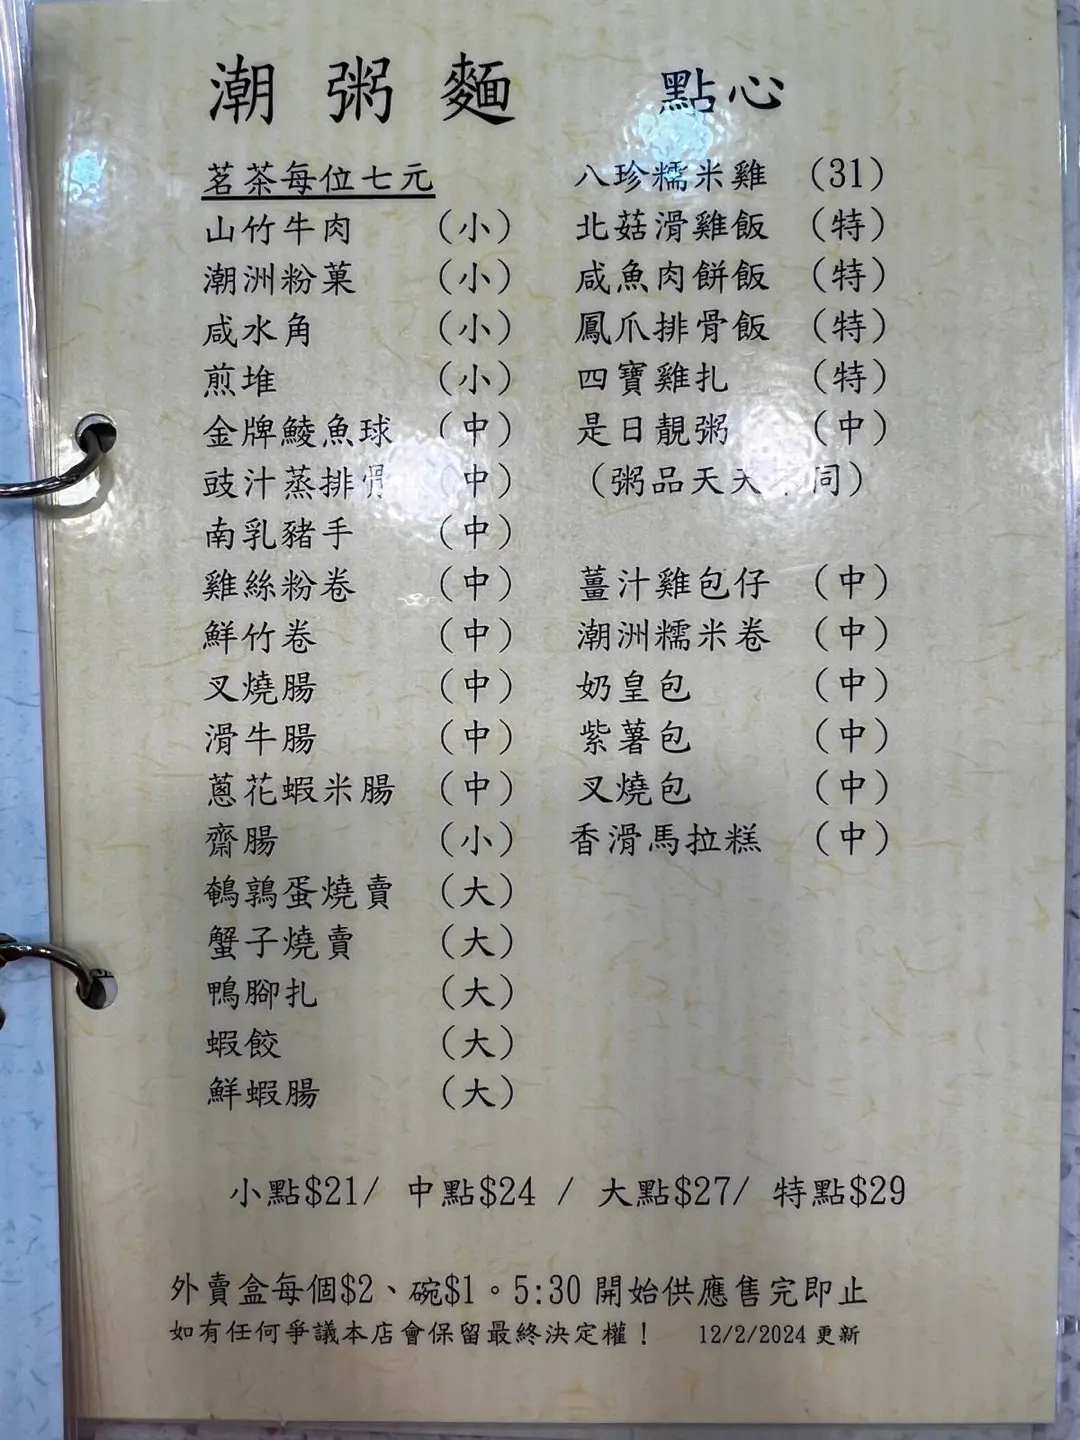 潮粥麵 點心
茗茶每位七元
山竹牛肉 (小)
潮洲粉菓 (小)
咸水角 (小)
煎堆 (小)
金牌鯪魚球 (中)
豉汁蒸排骨 (中)
南乳豬手 (中)
雞絲粉卷 (中)
鮮竹卷 (中)
叉燒腸 (中)
滑牛腸 (中)
蔥花蝦米腸 (中)
齋腸 (小)
鵪鶉蛋燒賣 (大)
蟹子燒賣 (大)
鴨腳扎 (大)
蝦餃 (大)
鮮蝦腸 (大)
八珍糯米雞 (31)
北菇滑雞飯 (特)
咸魚肉餅飯 (特)
鳳爪排骨飯 (特)
四寶雞扎 (特)
是日靚粥 (中)
(粥品天天不同)
薑汁雞包仔 (中)
潮洲糯米卷 (中)
奶皇包 (中)
紫薯包 (中)
叉燒包 (中)
香滑馬拉糕 (中)
小點$21/ 中點$24 / 大點$27/ 特點$29
外賣盒每個$2、碗$1。5:30 開始供應售完即止
如有任何爭議本店會保留最終決定權！ 12/2/2024 更新